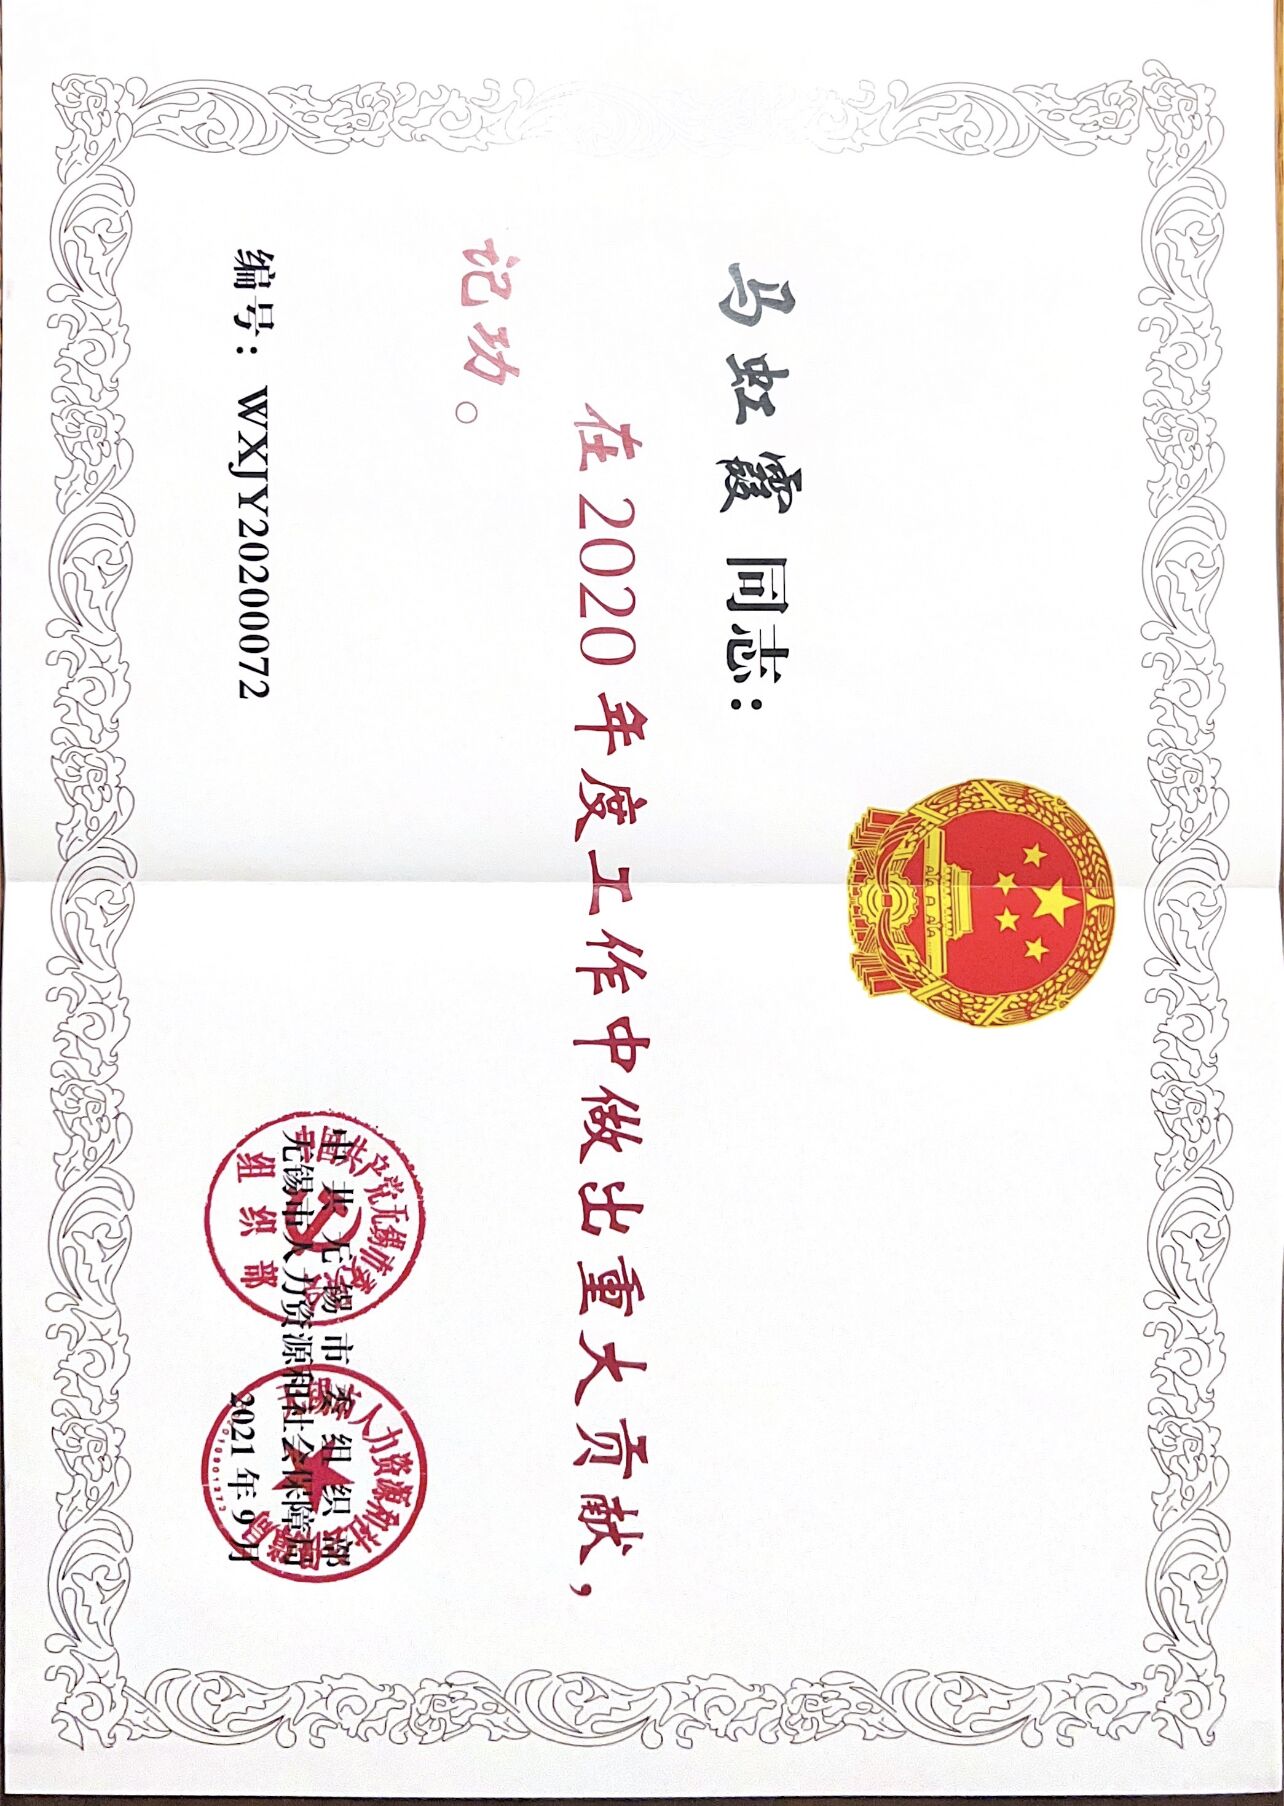 马虹霞同志：
在2020年度工作中做出重大贡献，
记功。
编号：WXJY20200072
中共无锡市委组织部
无锡市人力资源和社会保障局
2021年9月
中国共产党无锡市委员会
组织部
无锡市人力资源和社会保障局